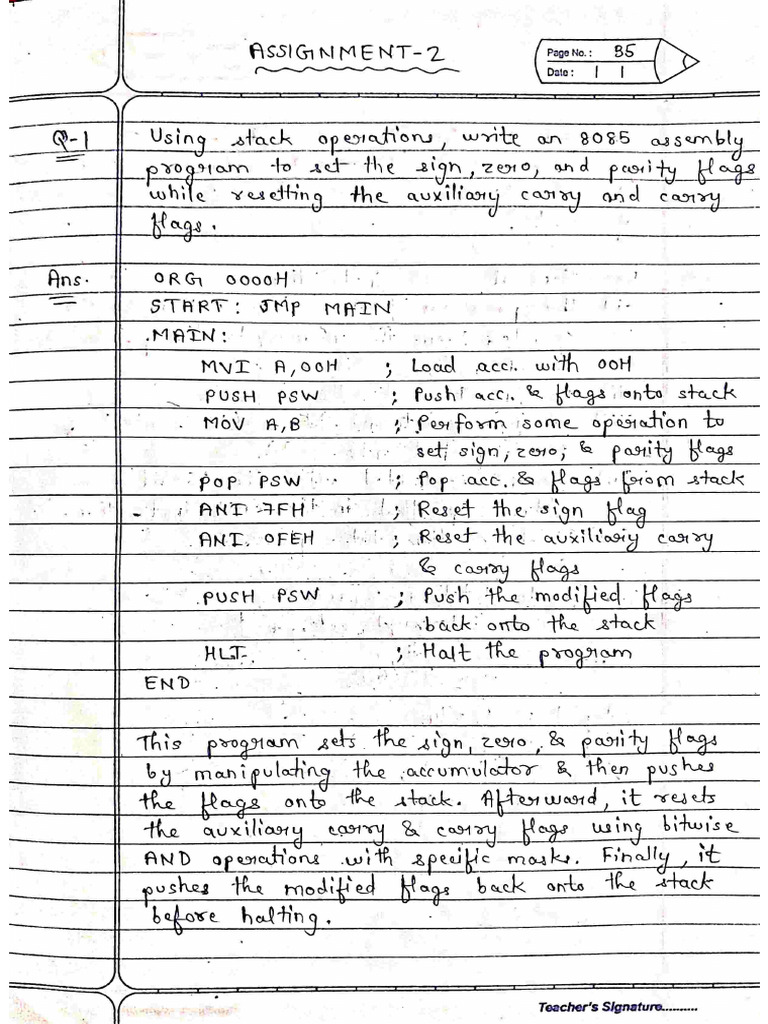 ASSIGNMENT-2
Page No.: 35
Date: | |
Q-1 Using stack operations, write an 8085 assembly
program to set the sign, zero, and parity flags
while resetting the auxiliary carry and carry
flags.
Ans. ORG 0000H
START: JMP MAIN
MAIN:
MVI A,00H ; Load acc. with 00H
PUSH PSW ; Push acc. & flags onto stack
MOV A,B ; Perform some operation to
set sign, zero, & parity flags
POP PSW ; Pop acc. & flags from stack
ANI 7FH ; Reset the sign flag
ANI 0FEH ; Reset the auxiliary carry
& carry flags
PUSH PSW ; Push the modified flags
back onto the stack
HLT ; Halt the program
END
This program sets the sign, zero, & parity flags
by manipulating the accumulator & then pushes
the flags onto the stack. Afterward, it resets
the auxiliary carry & carry flags using bitwise
AND operations with specific masks. Finally, it
pushes the modified flags back onto the stack
before halting.
Teacher's Signature..........